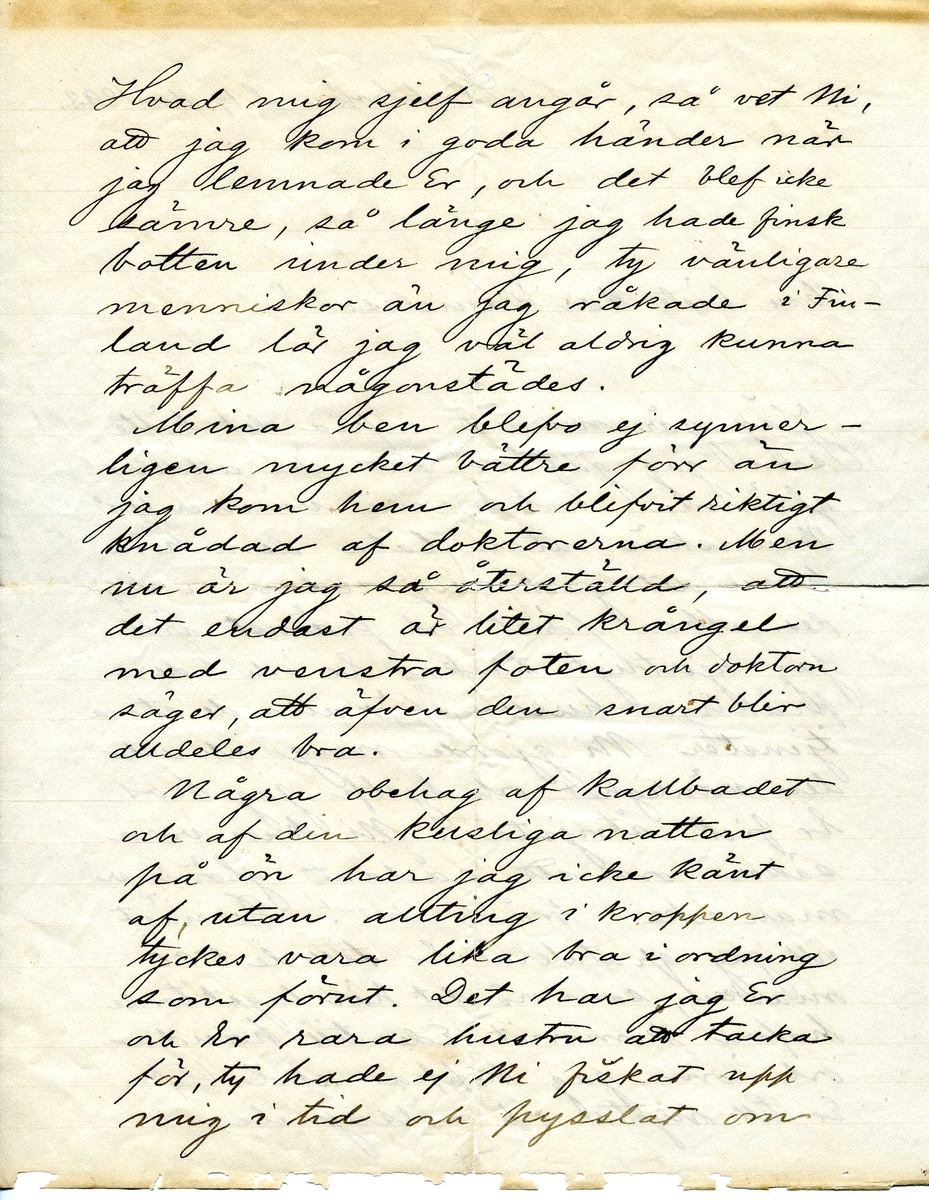 Hvad mig sjelf angår, så vet Ni,
att jag kom i goda händer när
jag lemnade Er, och det blef icke
sämre, så länge jag hade finsk
botten under mig, ty vänligare
menniskor än jag råkade i Fin-
land lär jag väl aldrig kunna
träffa någonstädes.
Mina ben blefvo ej synner-
ligen mycket bättre förr än
jag kom hem och blifvit riktigt
knådad af doktorerna. Men
nu är jag så återställd, att
det endast är litet krångel
med venstra foten och doktorn
säger, att äfven den snart blir
alldeles bra.
Några obehag af kallbadet
och af den kusliga natten
på ön har jag icke känt
af, utan allting i kroppen
tyckes vara lika bra i ordning
som förut. Det har jag Er
och Er rara hustru att tacka
för, ty hade ej Ni fiskat upp
mig i tid och pysslat om